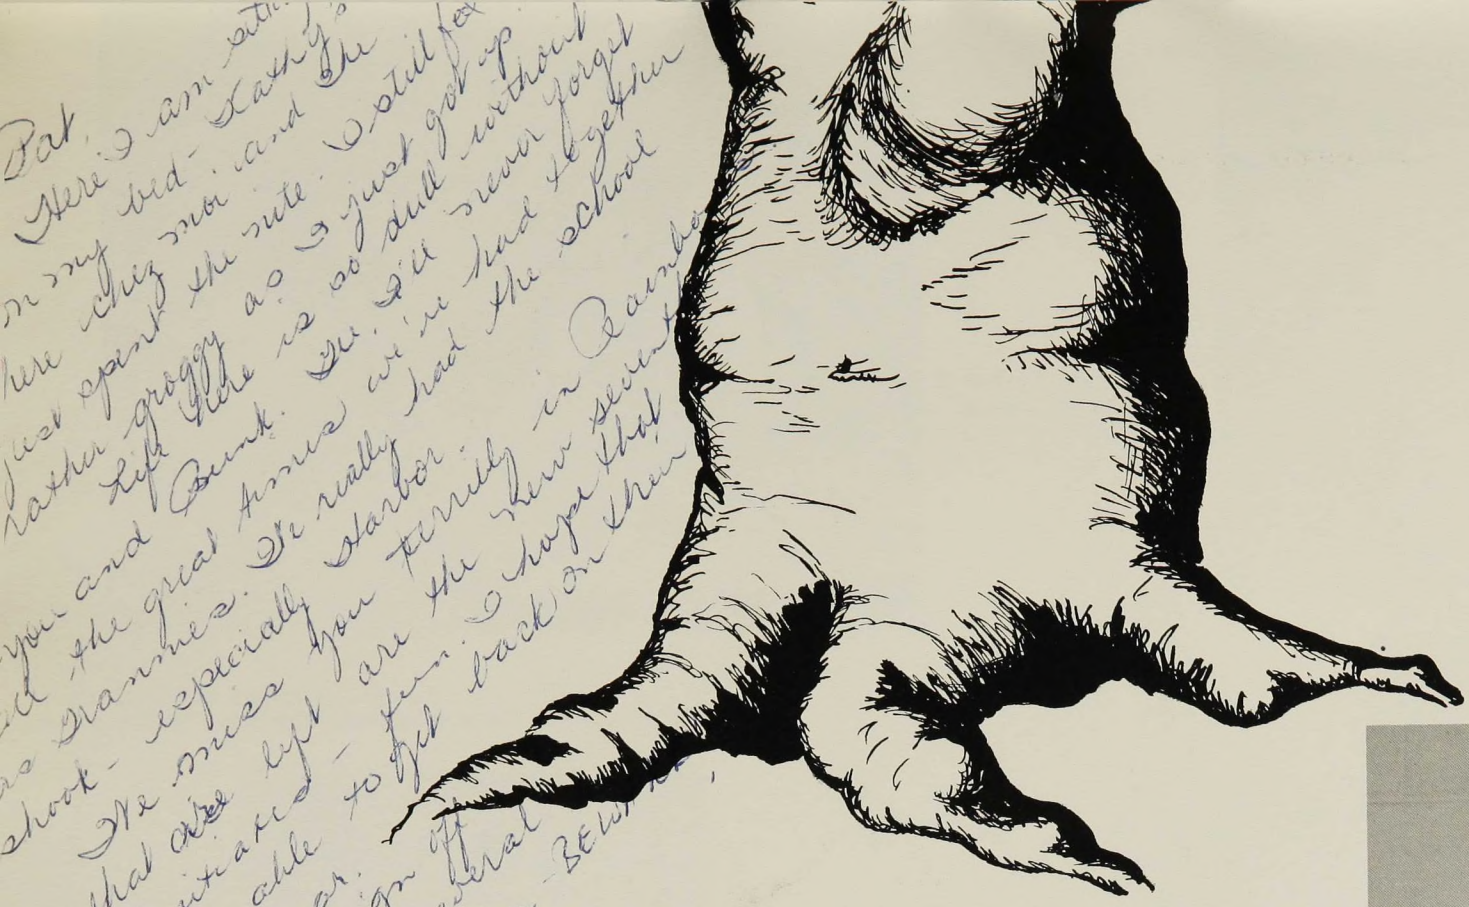 Pat,
Here I am sitti
on my bed - Kathy's
here chez moi and she
just spent the nite. I still fee
rather groggy as I just got up.
Life here is so dull without
you and Bunk. Gee, I'll never forget
all the great times we've had together
as Grannies. We really had the school
shook - especially Starbor.
We miss you terribly in Rainbo
that are left are the new seventh
itiated - fun. I hope that
able to get back on their
ar.
ign off
veral